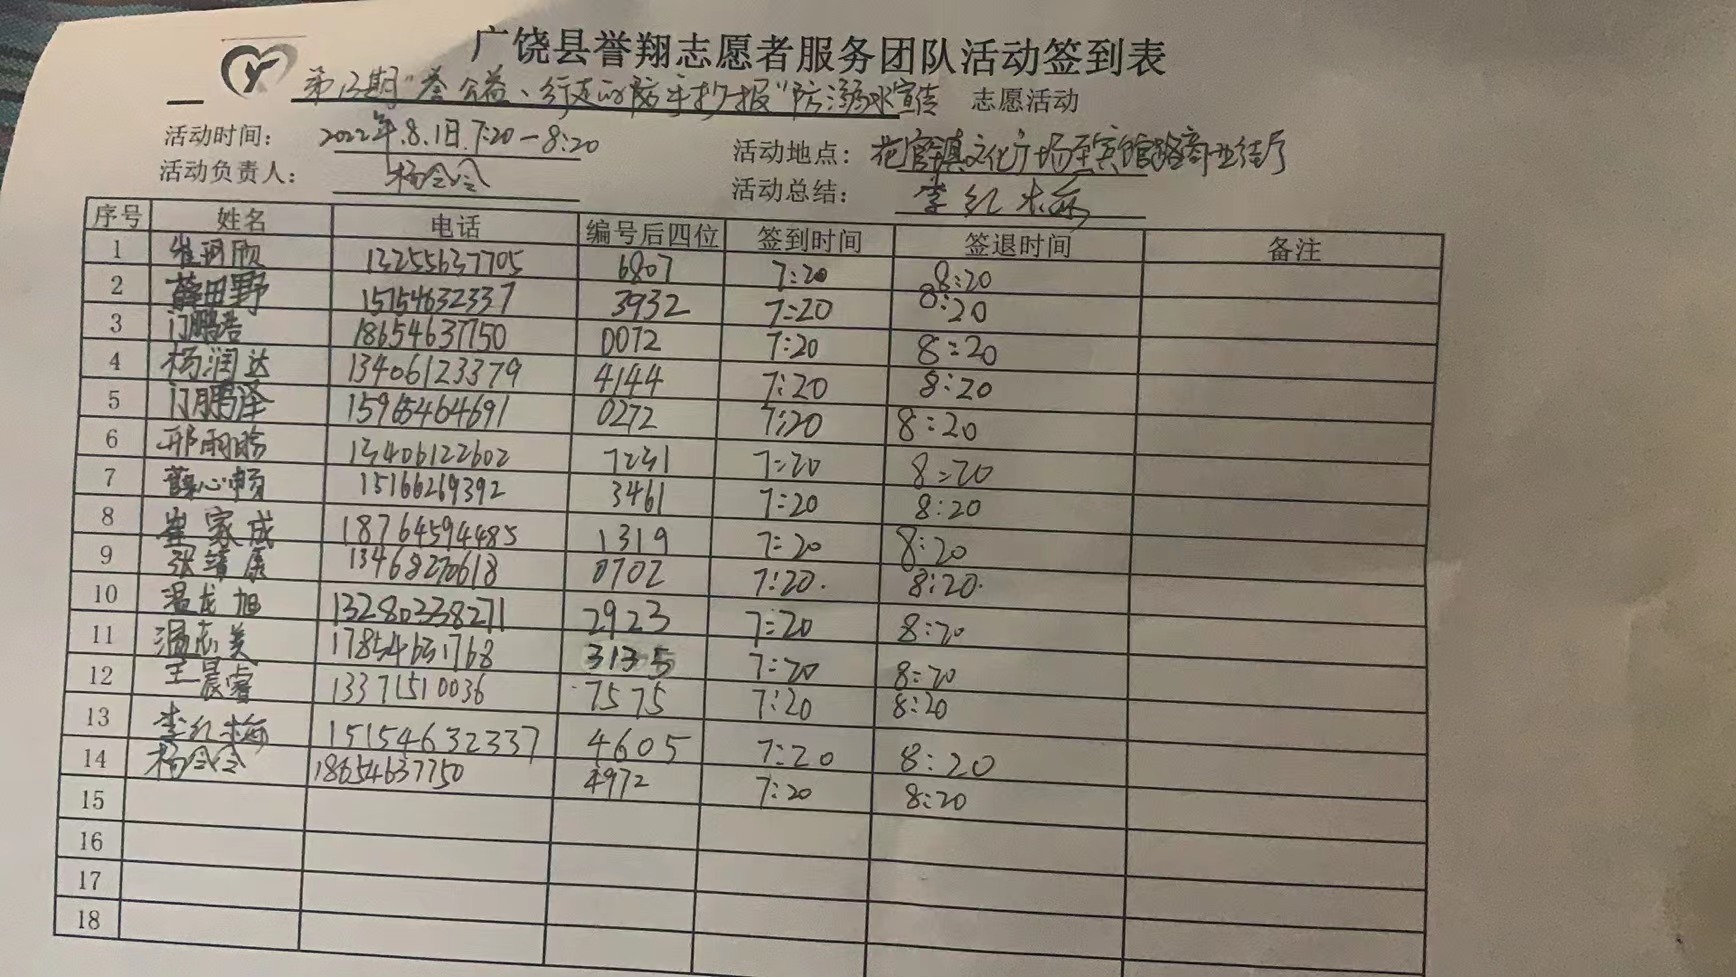 广饶县誉翔志愿者服务团队活动签到表
第13期"誉公益、行走的防手抄报"防溺水宣传 志愿活动
活动时间: 2022年.8.1日.7:20-8:20 活动地点: 花官镇文化广场至宾馆路商业街厅
活动负责人: 杨令令 活动总结: 李红梅
序号 姓名 电话 编号后四位 签到时间 签退时间 备注
1 崔玥欣 13255637705 6807 7:20 8:20
2 薛田野 15154632337 3932 7:20 8:20
3 门鹏浩 18654637750 0072 7:20 8:20
4 杨润达 13406123379 4144 7:20 8:20
5 门鹏泽 15965464691 0272 7:20 8:20
6 邢雨晗 13406122602 7231 7:20 8:20
7 心畅 15166269392 3461 7:20 8:20
8 崔家成 18764594485 1319 7:20 8:20
9 张靖康 13468270618 0702 7:20. 8:20.
10 温龙旭 13280338271 2923 7:20 8:20
11 温志美 17854631768 3135 7:20 8:20
12 王晨睿 13371510036 7575 7:20 8:20
13 李红梅 15154632337 4605 7:20 8:20
14 杨令令 18654637750 4972 7:20 8:20
15
16
17
18